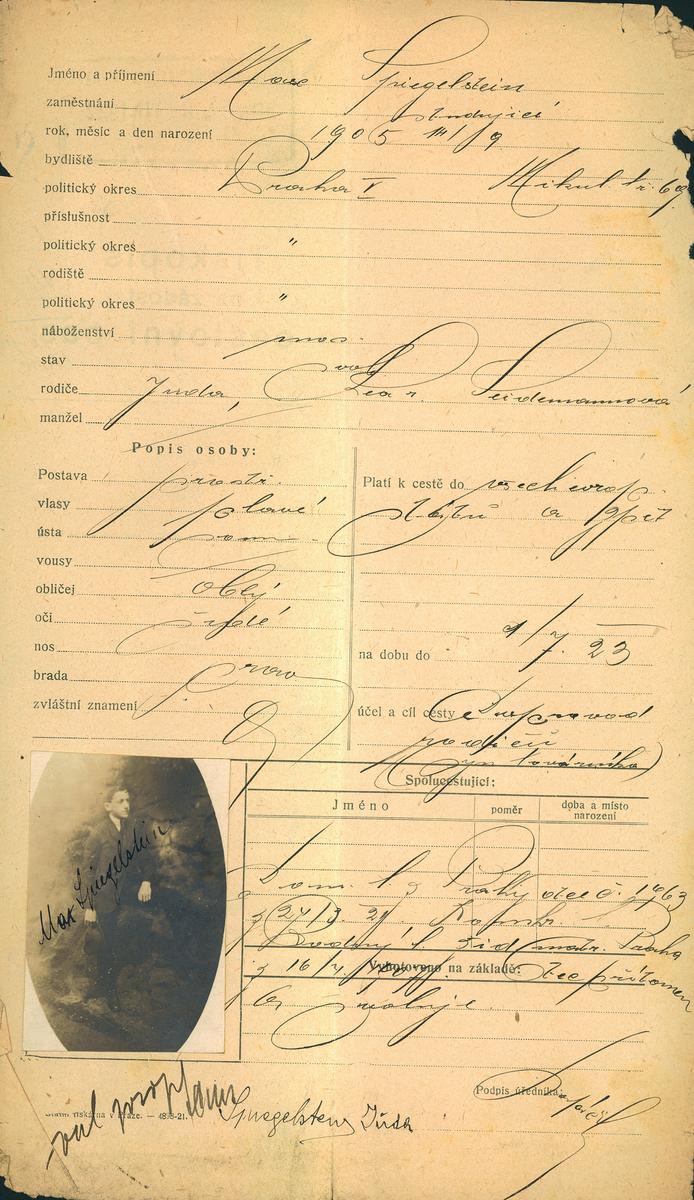 Jméno a příjmení Max Spiegelstein
zaměstnání studující
rok, měsíc a den narození 1905 III/9
bydliště
politický okres Praha V Mikul. tř. 69
příslušnost
politický okres "
rodiště
politický okres "
náboženství mos.
stav svob.
rodiče Juda, Lea r. Seidemannová
manžel
Popis osoby:
Postava prostř.
vlasy plavé
ústa
vousy
obličej oblý
oči šedé
nos
brada prav
zvláštní znamení
Platí k cestě do všech evrop.
států a zpět
na dobu do 9/7. 23
účel a cíl cesty Doprovod
rodičů
továrníka)
Spolucestující:
Jméno poměr doba a místo narození
Dom. l. z Prahy č. 1963
z 24/3. 21.
Rodný l. Žid. matr. Praha
z 16/7. Otec přítomen
Vyhotoveno na základě:
svoluje
Max Spiegelstein
Podpis úředníka:
tiskárna v Praze. — 21.
Spiegelstein Juda